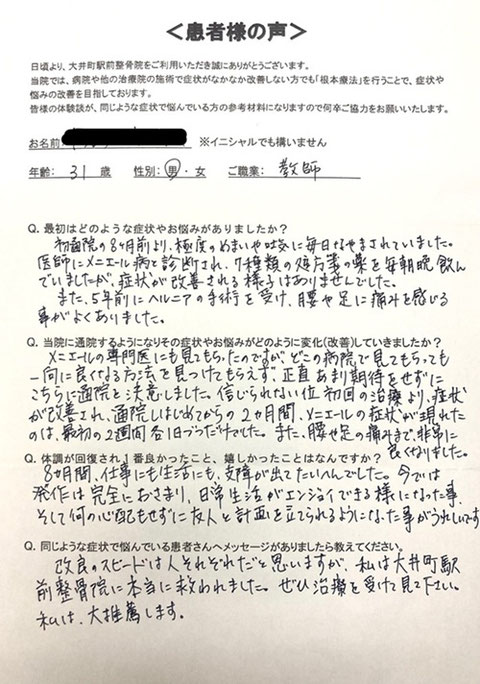 ＜患者様の声＞
日頃より、大井町駅前整骨院をご利用いただき誠にありがとうございます。
当院では、病院や他の治療院の施術で症状がなかなか改善しない方でも「根本療法」を行うことで、症状や
悩みの改善を目指しております。
皆様の体験談が、同じような症状で悩んでいる方の参考材料になりますので何卒ご協力をお願いいたします。
お名前: ※イニシャルでも構いません
年齢: 31 歳 性別: 男・女 ご職業: 教師
Q. 最初はどのような症状やお悩みがありましたか？
初通院の8ヶ月前より、極度のめまいや吐気に毎日なやまされていました。
医師にメニエール病と診断され、7種類の処方箋の薬を毎朝晩飲ん
でいましたが、症状が改善される様子はありませんでした。
また、5年前にヘルニアの手術を受け、腰や足に痛みを感じる
事がよくありました。
Q. 当院に通院するようになりその症状やお悩みがどのように変化(改善)していきましたか？
メニエールの専門医にも見てもらったのですが、どこの病院で見てもらっても
一向に良くなる方法を見つけてもらえず、正直あまり期待をせずに
こちらに通院を決意しました。信じられない位初回の治療より、症状
が改善され、通院しはじめてからの2ヵ月間、メニエールの症状が現れた
のは、最初の2週間各1日づつだけでした。また、腰や足の痛みまで、非常に
良くなりました。
Q. 体調が回復され、1番良かったこと、嬉しかったことはなんですか？
8ヵ月間、仕事にも生活にも、支障が出てたいへんでした。今では
発作は完全におさまり、日常生活がエンジョイできる様になった事、
そして何の心配もせずに友人と計画を立てられるようになった事がうれしいです
Q. 同じような症状で悩んでいる患者さんへメッセージがありましたら教えてください。
改良のスピードは人それぞれだと思いますが、私は大井町駅
前整骨院に本当に救われました。ぜひ治療を受けて見て下さい。
私は、大推薦します。